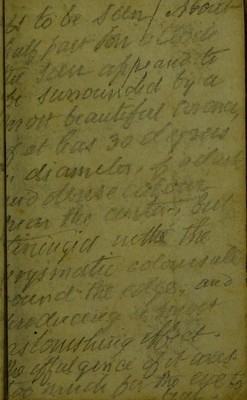 to be seen / About
half past ten o'clock
the Sun appeard to
be surrounded by a
most beautiful corona,
of at leas 30 degrees
in diameter, of a dusk
and dense colour
near the center, but
tining'd with the
prysmatic colours all
round the edge, and
producing a most
astonishing effect.
the effulgence of it was
too much for the eye to